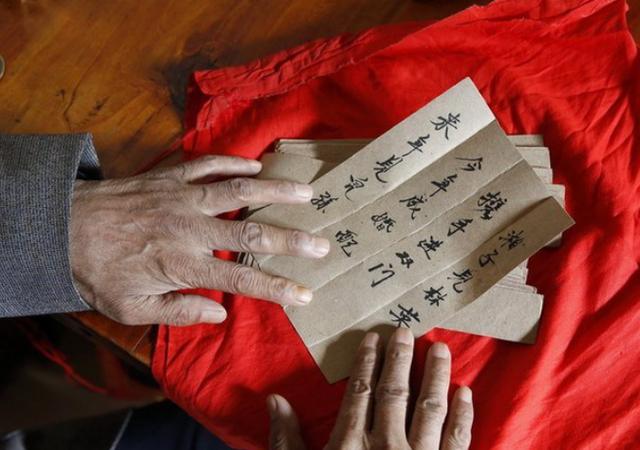 湘子见林英
携手进双门
今年成婚配
来年见儿孙